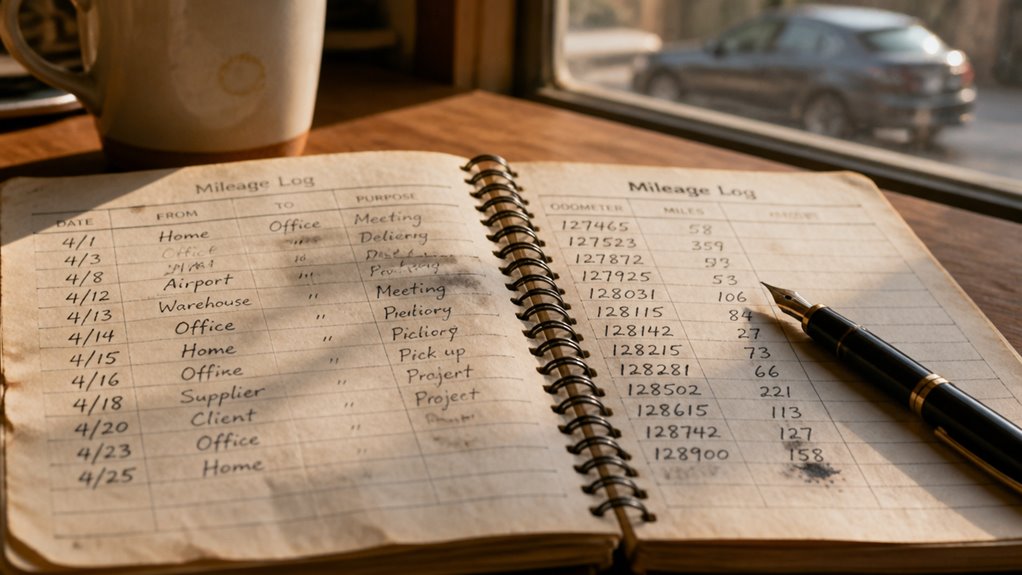 Mileage Log
DATE FROM TO PURPOSE
4/1 Home Office Meeting
4/3 Office " Delierg
4/8 Airport "
4/12 Warehouse " Meeting
4/13 Office "
4/14 Home " Picliorg
4/15 Offine " Pick up
4/16 Supplier " Projert
4/18 Client " Project
4/20 Office
4/23 Home
4/25
Mileage Log
ODOMETER MILES
127465 58
127523 359
127872 53
127925 53
128031 106
128115 84
128142 27
128215 73
128281 66
128502 221
128615 113
128742 127
128900 158